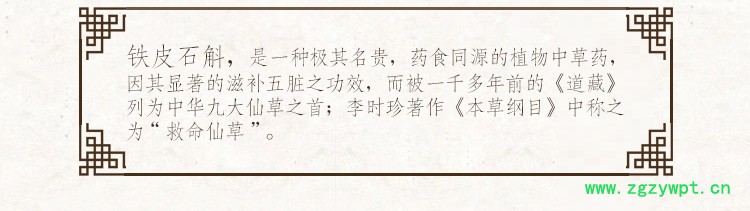 铁皮石斛，是一种极其名贵，药食同源的植物中草药，
因其显著的滋补五脏之功效，而被一千多年前的《道藏》
列为中华九大仙草之首；李时珍著作《本草纲目》中称之
为“救命仙草”。
www.zgzywpt.cn